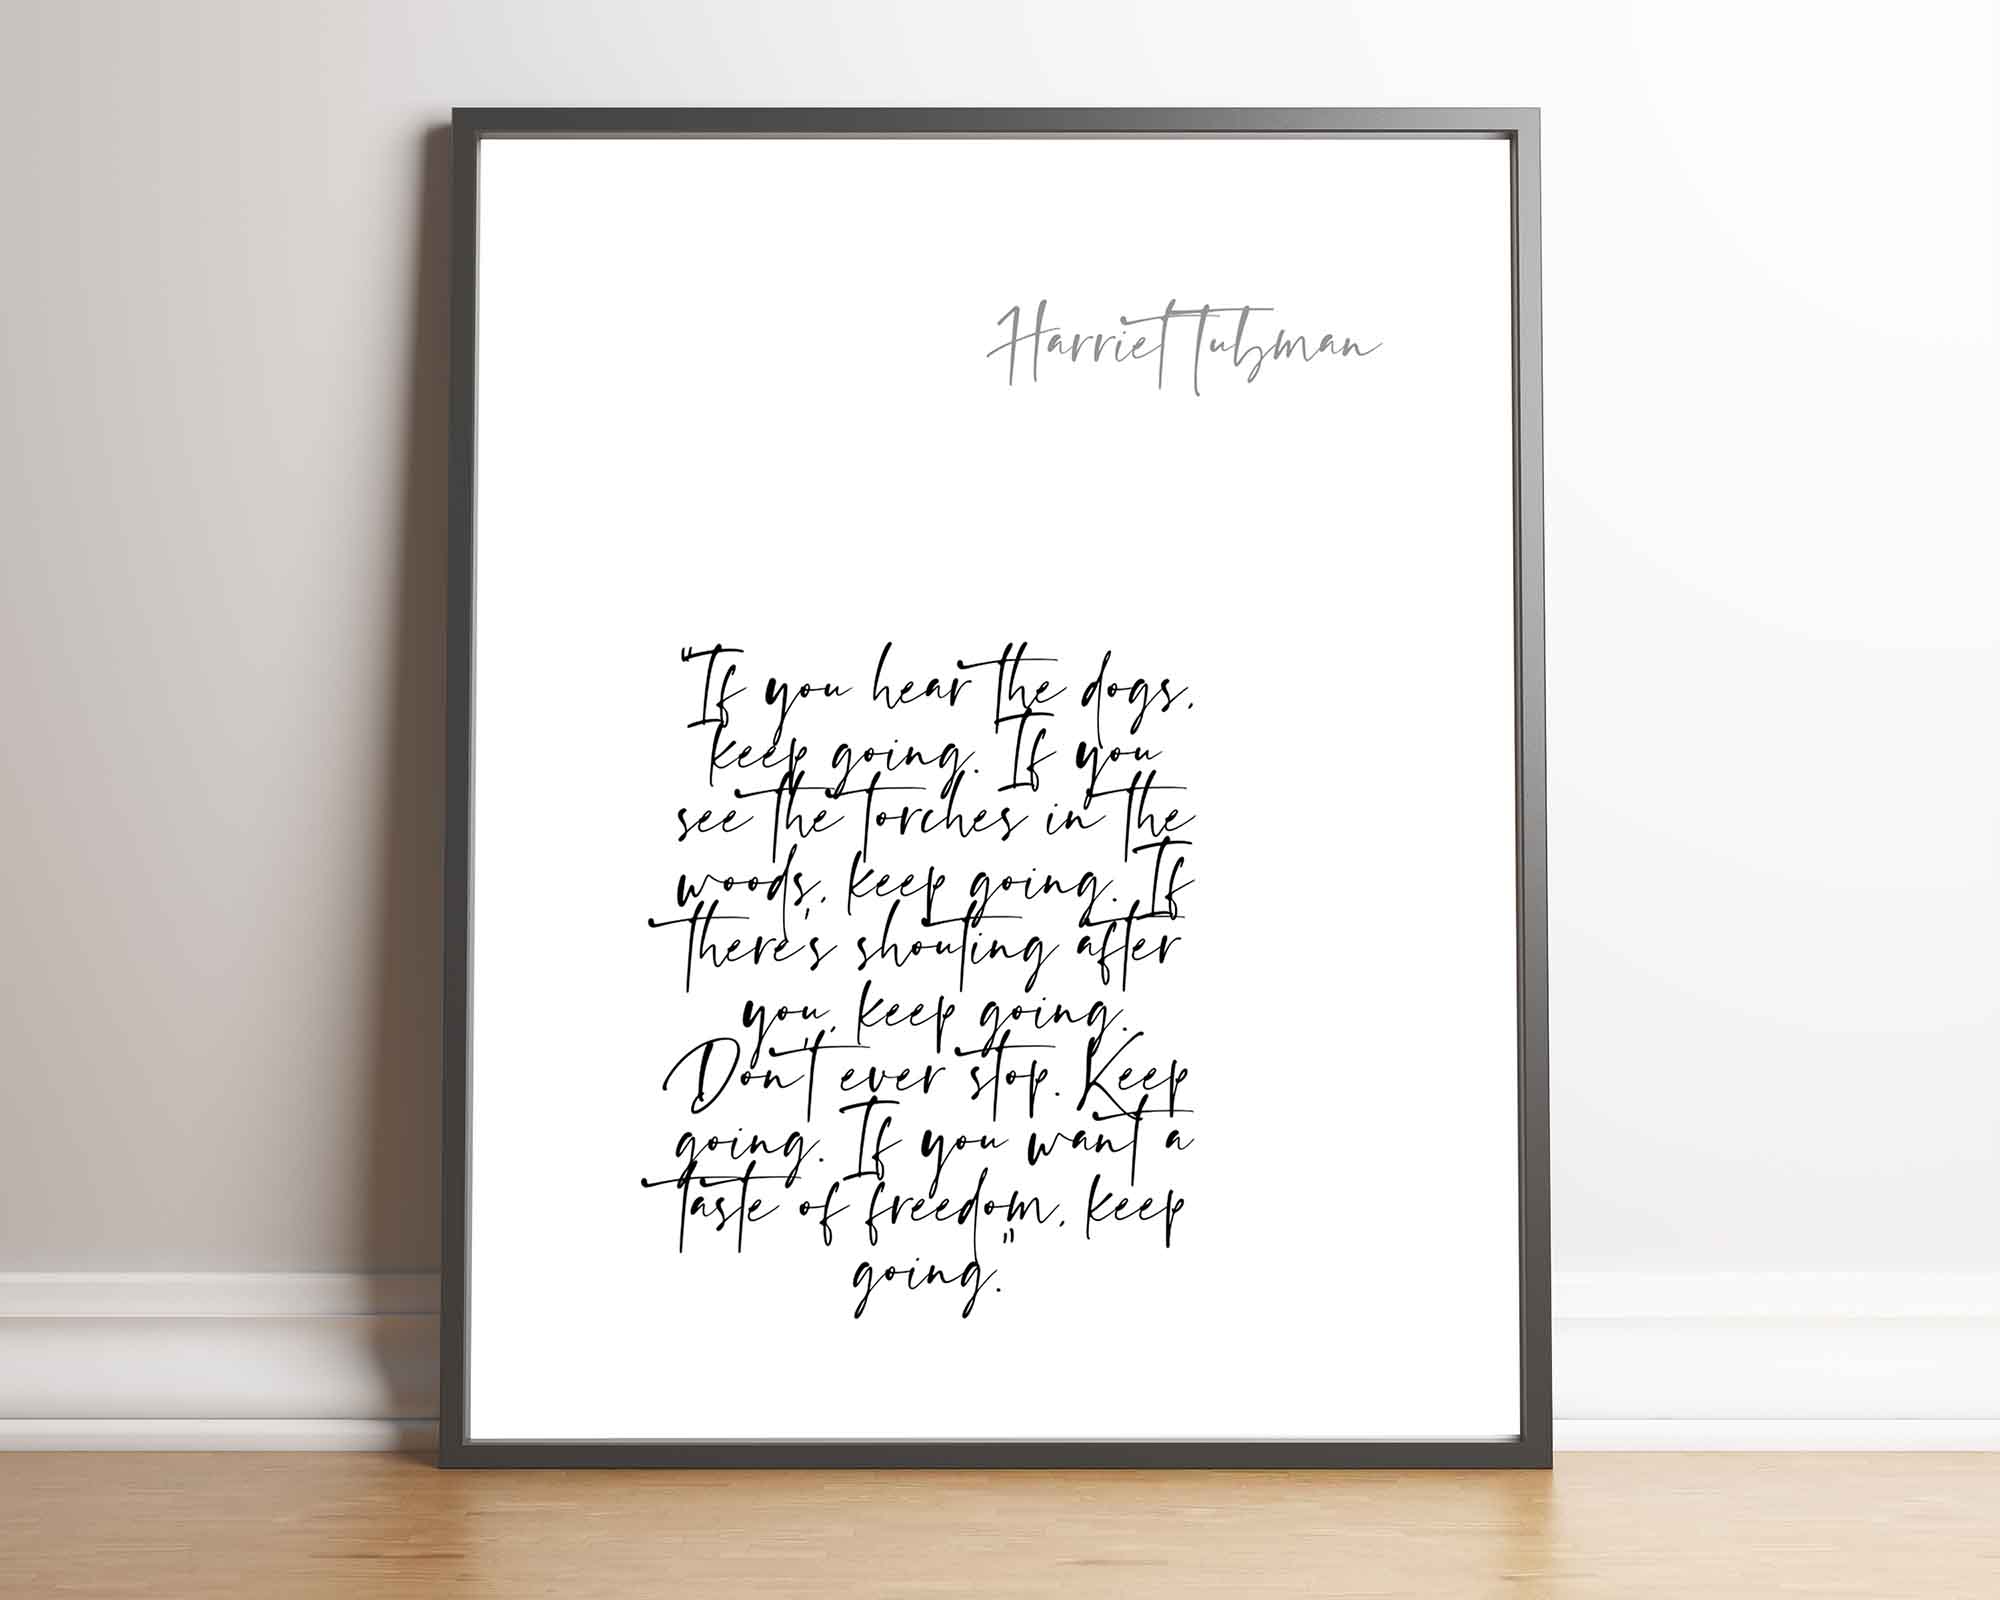 Harriet Tubman
"If you hear the dogs,
keep going. If you
see the torches in the
woods, keep going. If
there's shouting after
you, keep going.
Don't ever stop. Keep
going. If you want a
taste of freedom, keep
going."